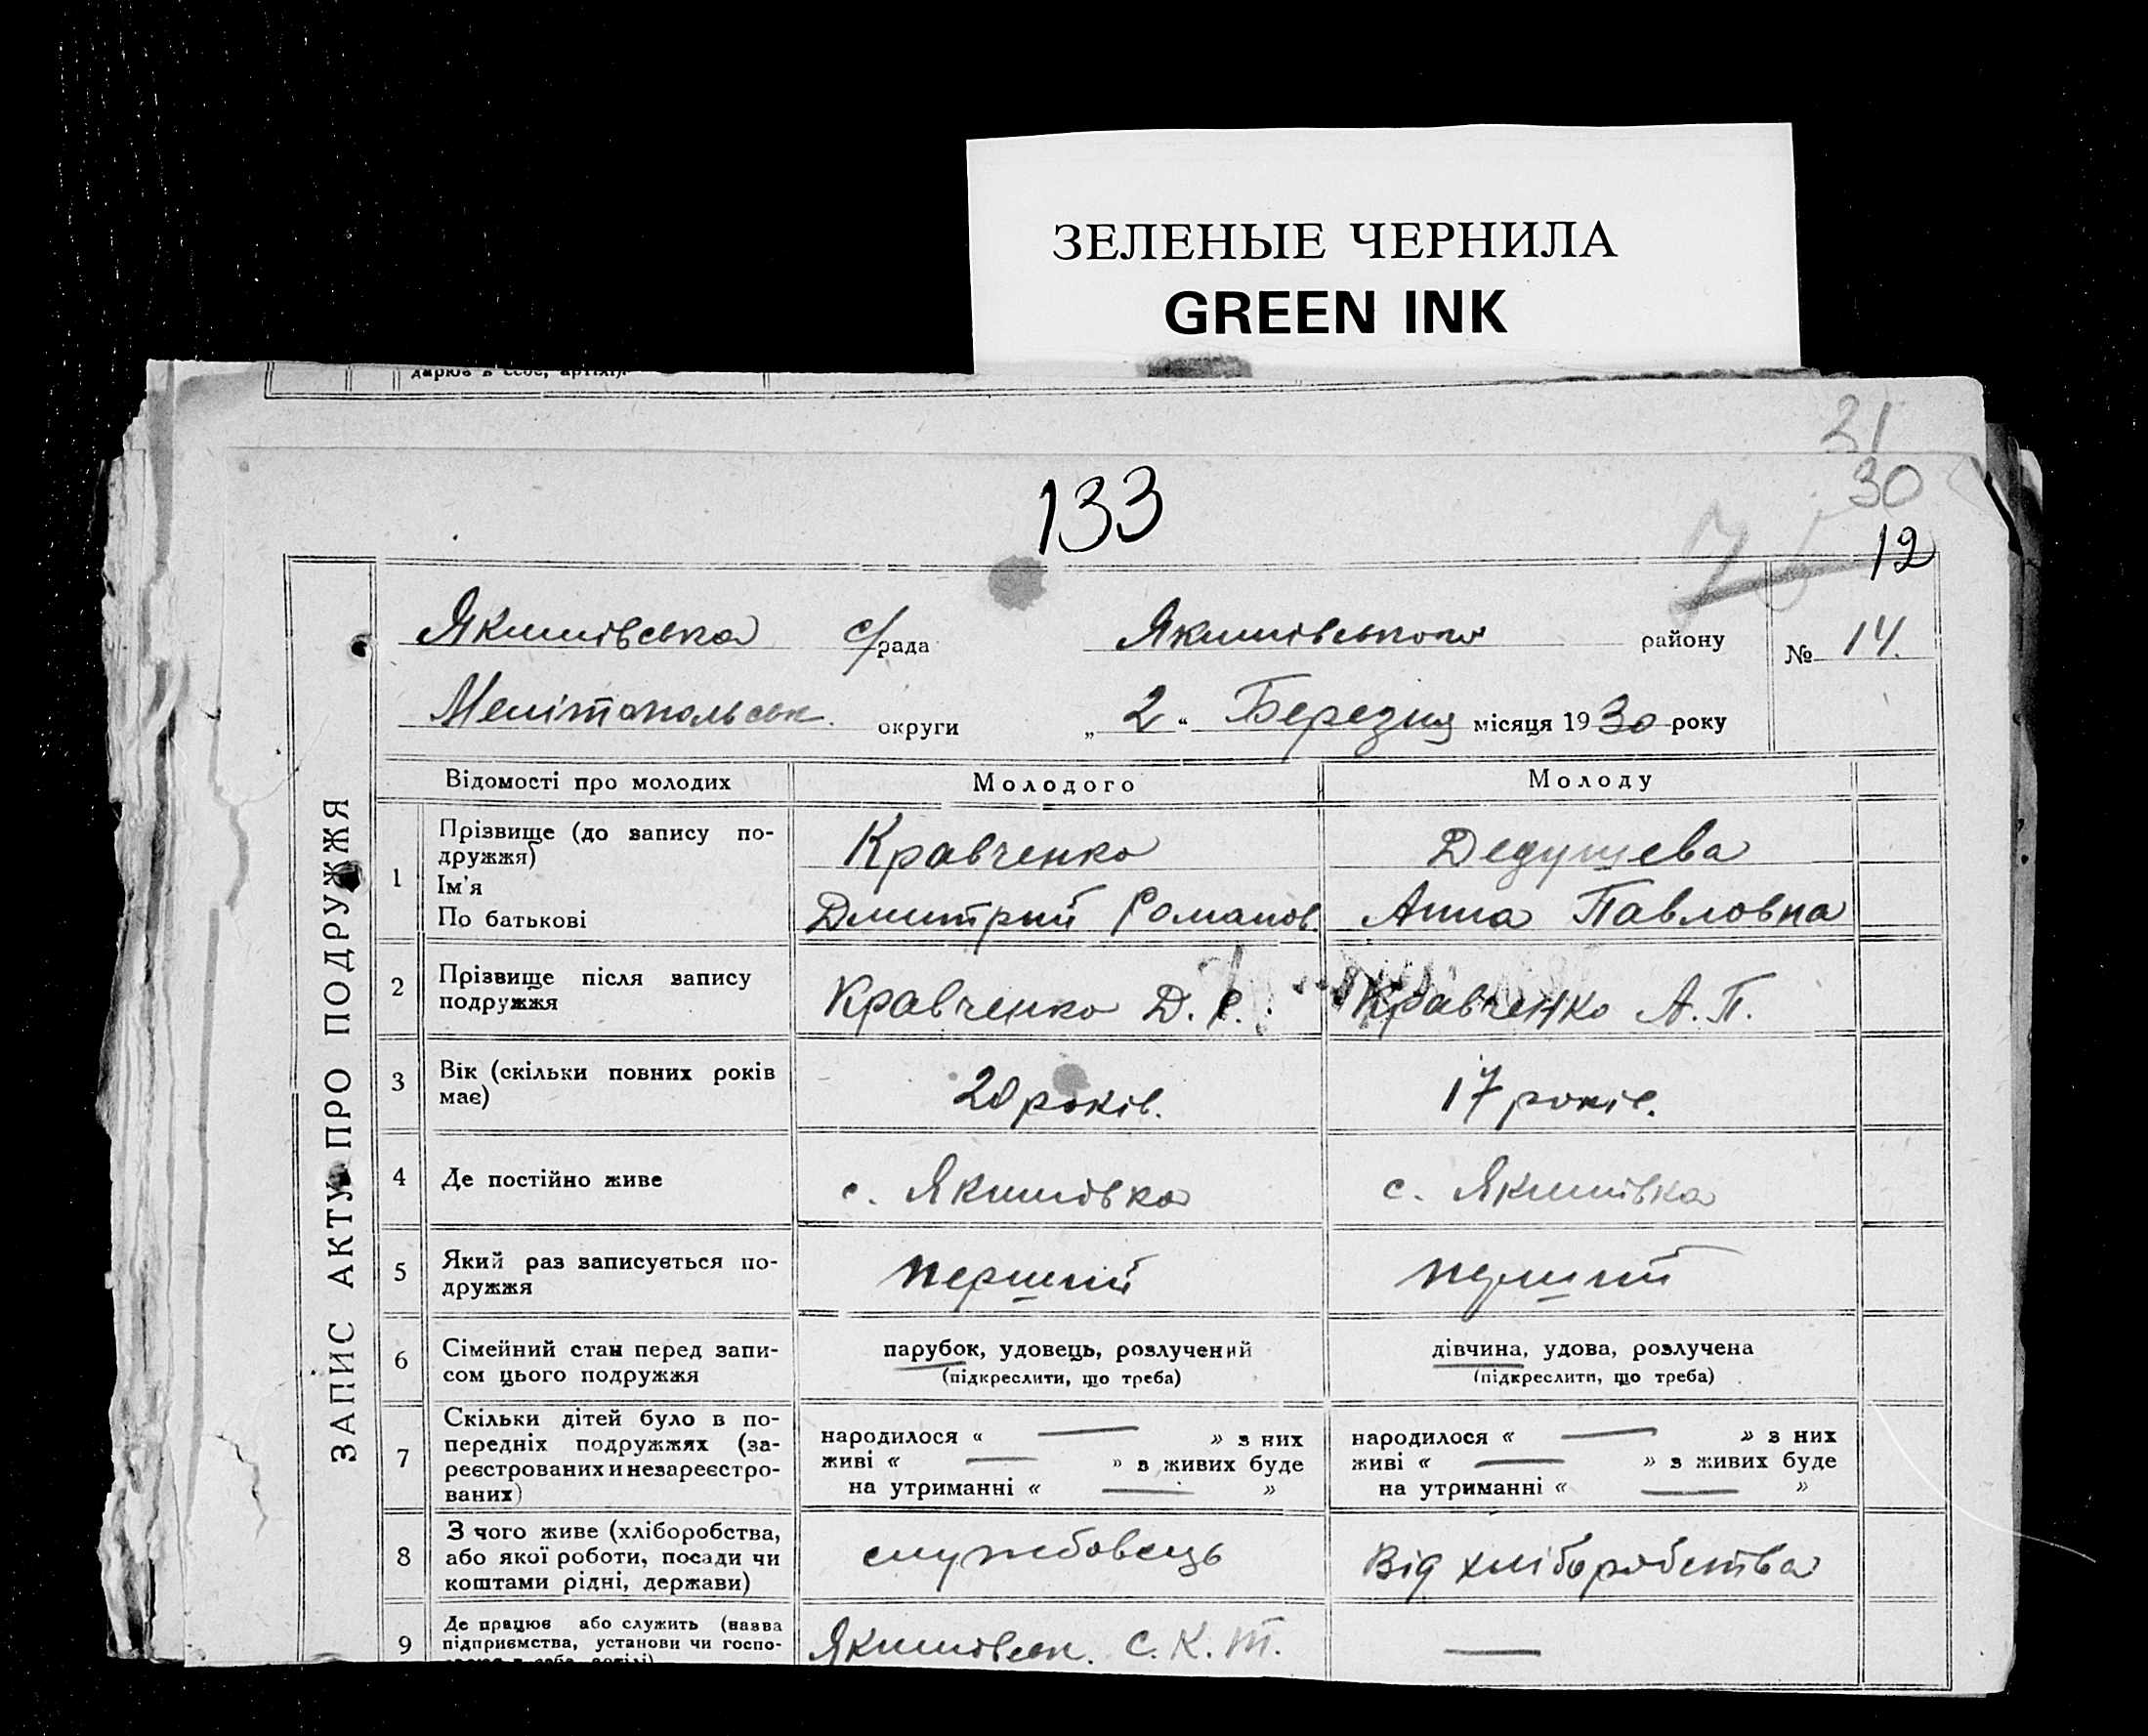 ЗЕЛЕНЫЕ ЧЕРНИЛА
GREEN INK
дарює в себе, артілі).
21
30
133
12
Якимівська с/рада Якимівського району № 14.
Мелітопольськ. округи „2“ Березня місяця 1930 року
ЗАПИС АКТУ ПРО ПОДРУЖЖЯ
Відомості про молодих Молодого Молоду
1 Прізвище (до запису по-
дружжя) Кравченко Дедушева
Ім'я
По батькові Дмитрий Романов. Анна Павловна
2 Прізвище після запису
подружжя Кравченко Д. Р. Кравченко А. П.
3 Вік (скільки повних років
має) 20 років. 17 років.
4 Де постійно живе с. Якимівка с. Якимівка
5 Який раз записується по-
дружжя перший перший
6 Сімейний стан перед запи-
сом цього подружжя парубок, удовець, розлучений дівчина, удова, розлучена
(підкреслити, що треба) (підкреслити, що треба)
7 Скільки дітей було в по-
передніх подружжях (за-
реєстрованих и незареєстро-
ваних)
народилося « — » з них народилося « — » з них
живі « — » з живих буде живі « — » з живих буде
на утриманні « — » на утриманні « — »
8 З чого живе (хліборобства,
або якої роботи, посади чи
коштами рідні, держави) службовець Від хліборобства
9 Де працює або служить (назва
підприємства, установи чи госпо-
Якимівськ. С. К. Т. —